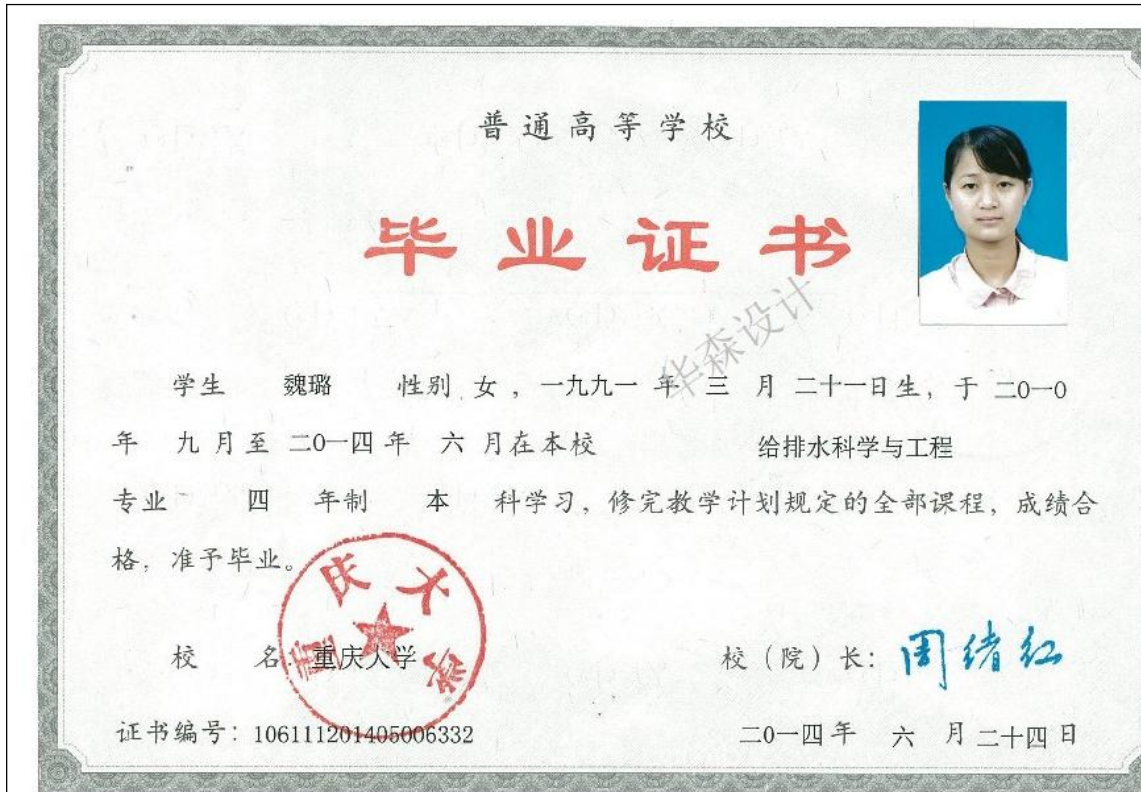 普通高等学校
毕业证书
华森设计
学生 魏璐 性别 女，一九九一 年 三 月 二十一日生，于 二0一0
年 九 月至 二0一四 年 六 月在本校 给排水科学与工程
专业 四 年制 本 科学习，修完教学计划规定的全部课程，成绩合
格，准予毕业。
重庆大学
校 名：重庆大学 校（院）长：周绪红
证书编号：106111201405006332 二0一四 年 六 月 二十四 日